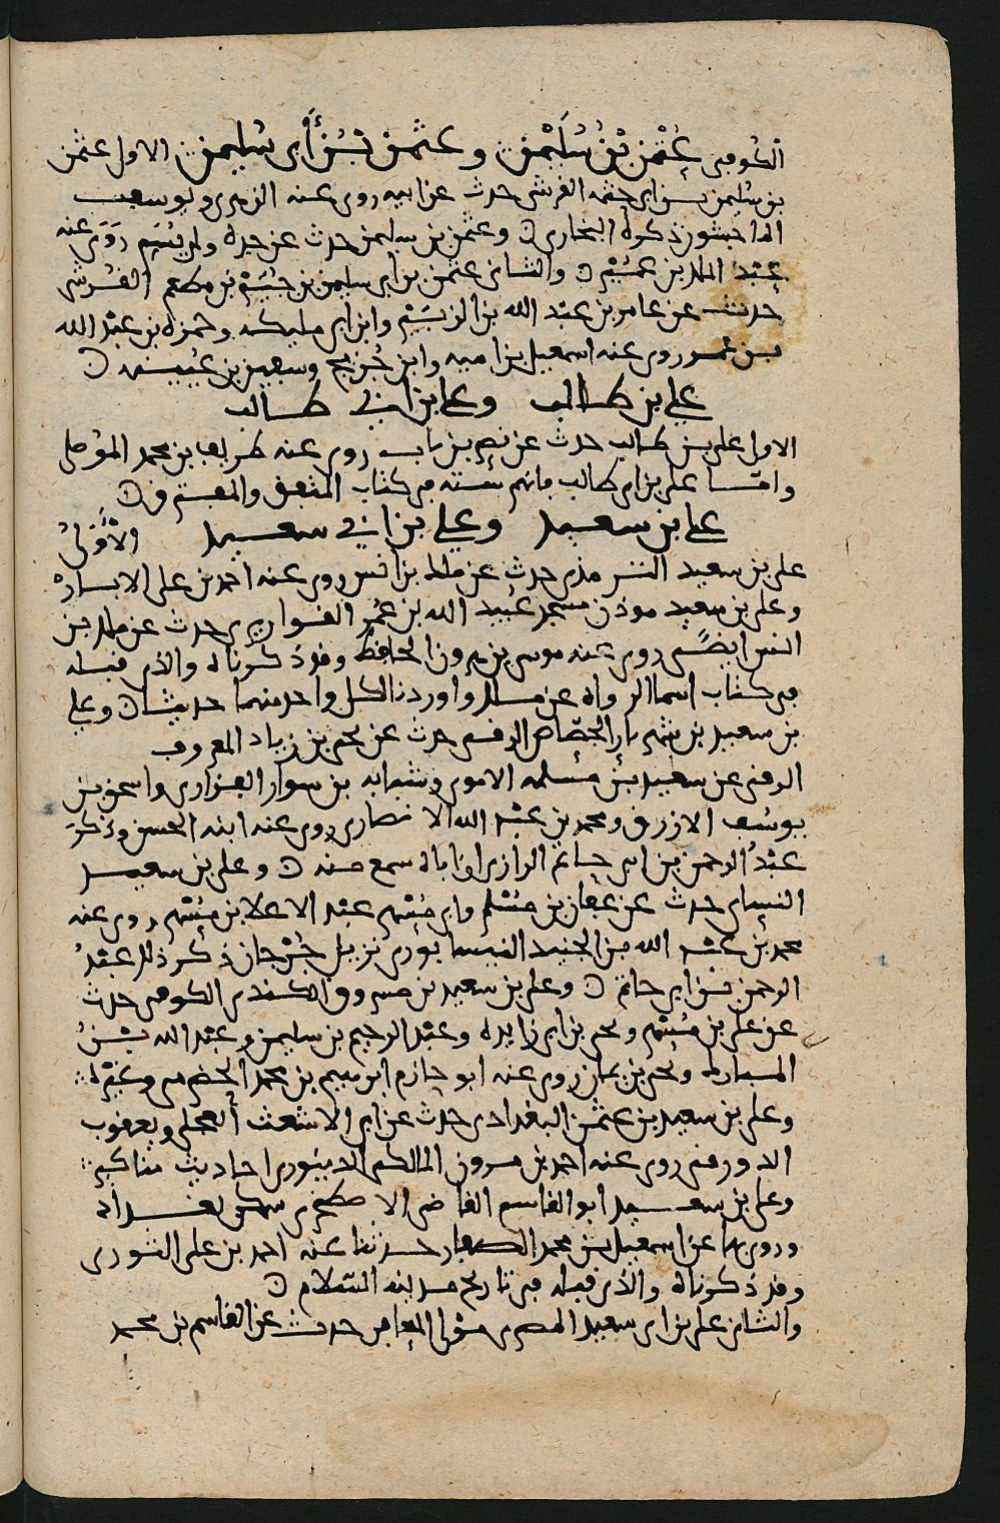 الكوفي عثمن بن سليمن وعثمن بن أبي سليمن الاول عثمن
بن سليمن بن ابي حثمه القرشي حدث عن ابيه روى عنه الزهري ويوسف
الماجشون ذكره البخاري وعثمن بن سليمن حدث عن جده ولم يسم روى عنه
عبد الملك بن عمير والثاني عثمن بن ابي سليمن بن جبير بن مطعم القرشي
حدث عن عامر بن عبد الله بن الزبير وابن ابي مليكه وحمزه بن عبد الله
بن عمر روى عنه اسمعيل بن اميه وابن جريج وسفين بن عيينه
علي بن طالب وعلي بن ابي طالب
الاول علي بن طالب حدث عن نصر بن باب روى عنه طريف بن محمد الموصلي
وامّا علي بن ابي طالب فانهم ستة في كتاب المتفق والمفترق
علي بن سعيد وعلي بن ابي سعيد الأول
علي بن سعيد الترمذي حدث عن ملك بن انس روى عنه احمد بن علي الابار
وعلي بن سعيد موذن مسجد عبيد الله بن عمر القواريري حدث عن ملك بن
انس ايضا روى عنه موسى بن هرون الحافظ وقد ذكرناه والذي قبله
في كتاب اسما الرواه عن ملك واوردنا لكل واحد منهما حديثا وعلي
بن سعيد بن شهريار الجصاص الرقي حدث عن يحيى بن زياد المعروف
الرقي عن سعيد بن مسلمه الاموي وشبابه بن سوار الفزاري واسحق بن
يوسف الازرق ومحمد بن عبد الله الانصاري روى عنه ابنه الحسن وذكر
عبد الرحمن بن ابي حاتم الرازي ان اباه سمع منه وعلي بن سعيد
النساي حدث عن عفان بن مسلم وابي مسهر عبد الاعلا بن مسهر روى عنه
محمد بن عبد الله بن الجنيد النيسابوري نزيل جرجان ذكر ذلك عبد
الرحمن بن ابي حاتم وعلي بن سعيد بن مسروق الكندي الكوفي حدث
عن علي بن مسهر ويحيى بن ابي زايده وعبد الرحيم بن سليمن وعبد الله بن
المبارك ويحيى بن يمان روى عنه ابو حازم ابرهيم بن محمد الحضرمي وغيره
وعلي بن سعيد بن عثمن البغدادي حدث عن ابي الاشعث العجلي ويعقوب
الدورقي روى عنه احمد بن مرون المالكي الدينوري احاديث مناكير
وعلي بن سعيد ابو القاسم القاضي الاصطخري سكن بغداد
وروى بها عن اسمعيل بن محمد الصفار حدثنا عنه احمد بن علي الثوري
وقد ذكرناه والذي قبله في تاريخ مدينه السّلام
والثاني علي بن ابي سعيد المصري مولى المعافر حدث عن القاسم بن محمد